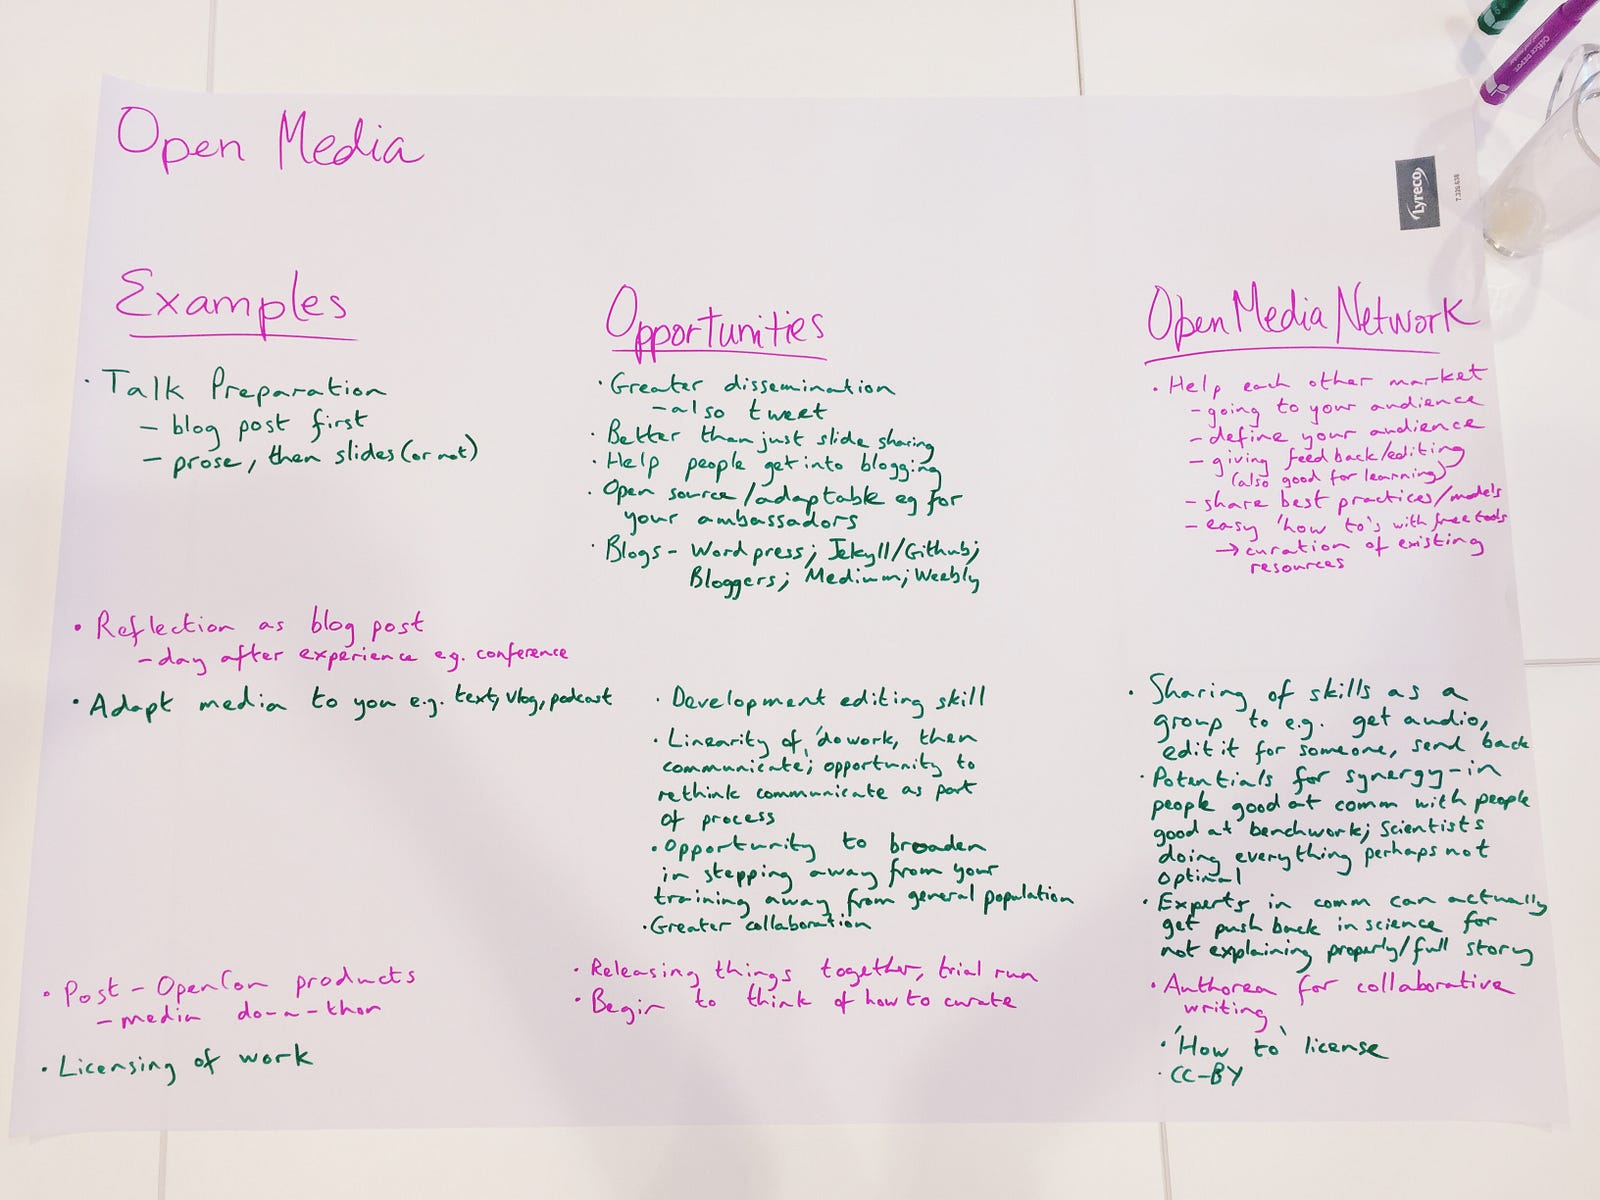 Open Media
Examples
· Talk Preparation
- blog post first
- prose, then slides (or not)
· Reflection as blog post
- day after experience e.g. conference
· Adapt media to you e.g. text, vlog, podcast
· Post-OpenCon products
- media do-a-thon
· Licensing of work
Opportunities
· Greater dissemination
- also tweet
· Better than just slide sharing
· Help people get into blogging
· Open source/adaptable eg for
your ambassadors
· Blogs - Wordpress; Jekyll/Github;
Bloggers; Medium; Weebly
· Development editing skill
· Linearity of 'do work, then
communicate; opportunity to
rethink communicate as part
of process
· Opportunity to broaden
in stepping away from your
training away from general population
· Greater collaboration
· Releasing things together, trial run
· Begin to think of how to curate
Open Media Network
· Help each other market
- going to your audience
- define your audience
- giving feedback/editing
(also good for learning)
- share best practices/models
- easy 'how to's with free tools
→ curation of existing
resources
· Sharing of skills as a
group to e.g. get audio,
edit it for someone, send back
· Potentials for synergy - in
people good at comm with people
good at benchwork; scientists
doing everything perhaps not
optimal
· Experts in comm can actually
get push back in science for
not explaining properly/full story
· Authorea for collaborative
writing
· 'How to' license
· CC-BY
Lyreco
7.326.638
Office DEPOT